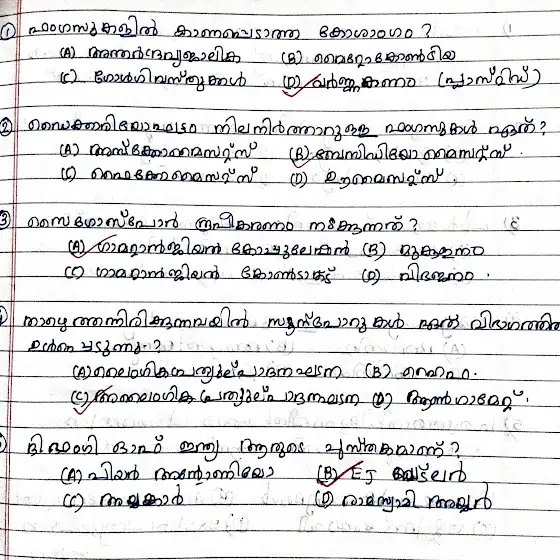 ① ഫംഗസുകളിൽ കാണപ്പെടാത്ത കോശാംഗം ?
(A) അന്തർദ്രവ്യജാലിക (B) മൈറ്റോകോൺട്രിയ
(C) ഗോൾഗിവസ്തുക്കൾ (D) വർണ്ണകണം (പ്ലാസ്റ്റിഡ്)
② ഡൈക്കാരിയോഘട്ടം നിലനിർത്താറുള്ള ഫംഗസുകൾ ഏത്?
(A) അസ്കോമൈസറ്റ്സ് (B) ബേസിഡിയോമൈസറ്റ്സ് .
(C) ഫൈകോമൈസറ്റ്സ് (D) ഊമൈസറ്റ്സ് .
③ സൈഗോസ്പോർ രൂപീകരണം നടക്കുന്നത് ?
(A) ഗാമറ്റാൻജിയൻ കോപ്പുലേഷൻ (B) മുകുളനം
(C) ഗാമറ്റാൻജിയൻ കോൺടാക്ട് (D) വിഭജനം .
താഴെ തന്നിരിക്കുന്നവയിൽ സൂസ്പോറുകൾ ഏത് വിഭാഗത്തിൽ
ഉൾപ്പെടുന്നു ?
(A) ലൈംഗികപ്രത്യുല്പാദനഘടന (B) ഹൈഫ .
(C) അലൈംഗികപ്രത്യുല്പാദനഘടന (D) ആൺഗാമേറ്റ് .
ദി ഫംഗി ഓഫ് ഇന്ത്യ ആരുടെ പുസ്തകമാണ് ?
(A) പിയർ അന്റോണിയോ (B) EJ ബട്ലർ
(C) അയ്യങ്കാർ (D) രാമസ്വാമി അയ്യർ